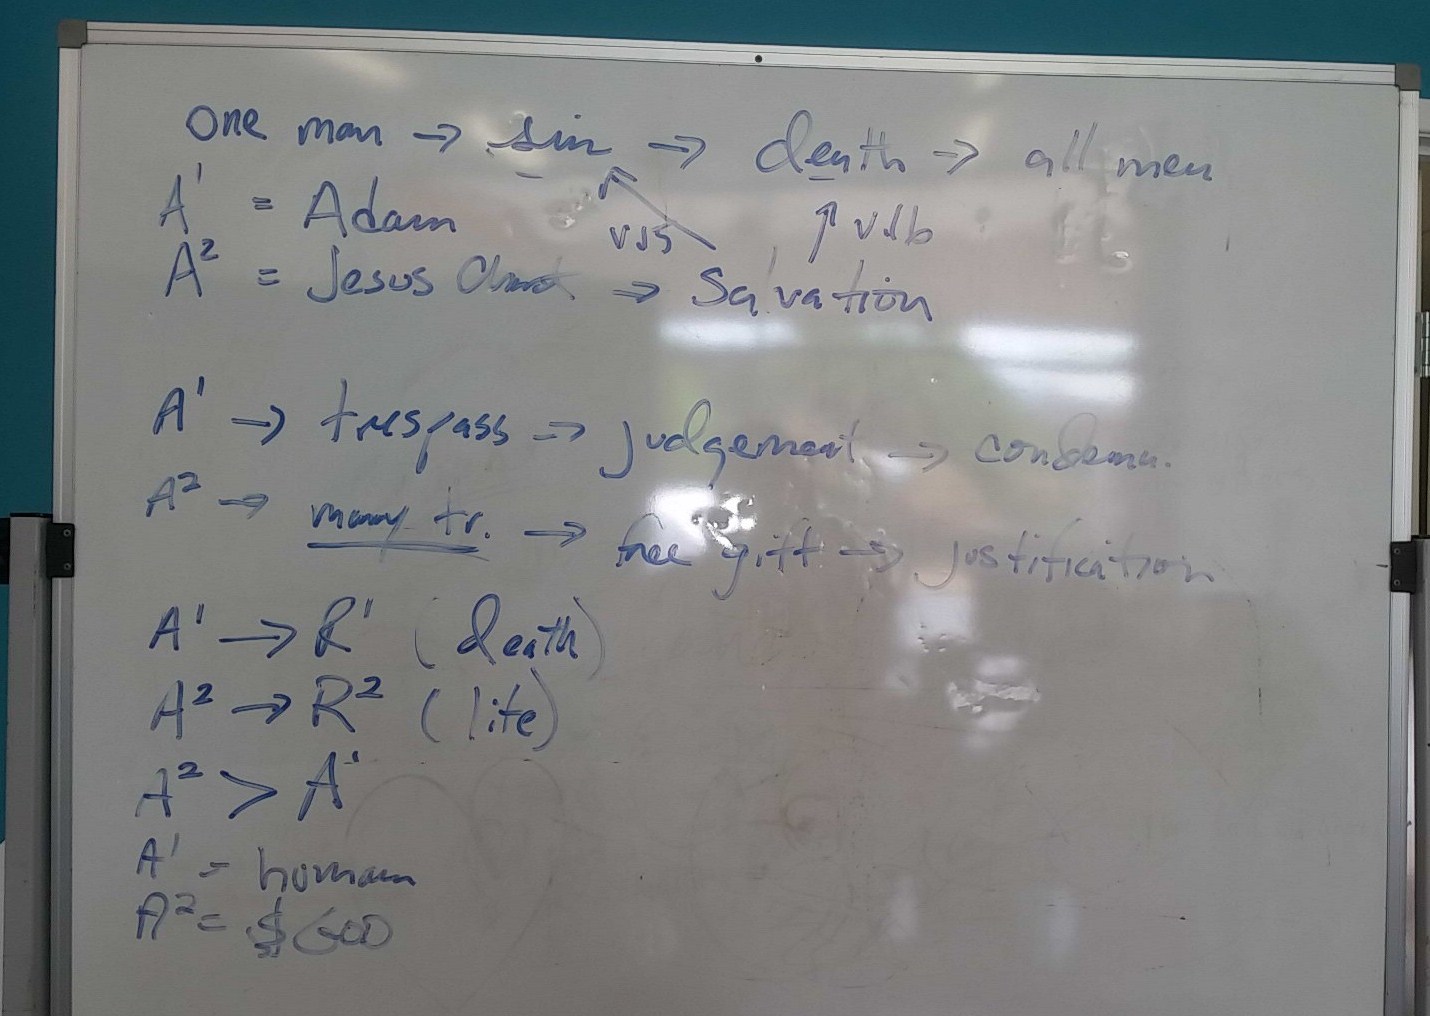 One man → sin → death → all men
A¹ = Adam
v.15 ↑ v.16
A² = Jesus Christ → Salvation
A¹ → trespass → judgement → condemn.
A² → many tr. → free gift → justification
A¹ → R¹ (death)
A² → R² (life)
A² > A¹
A¹ = human
A² = & GOD